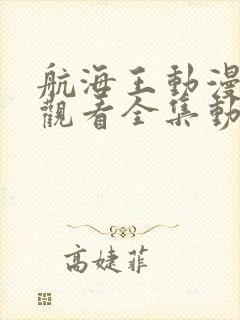 航海王動漫
觀看全集動
高婕菲